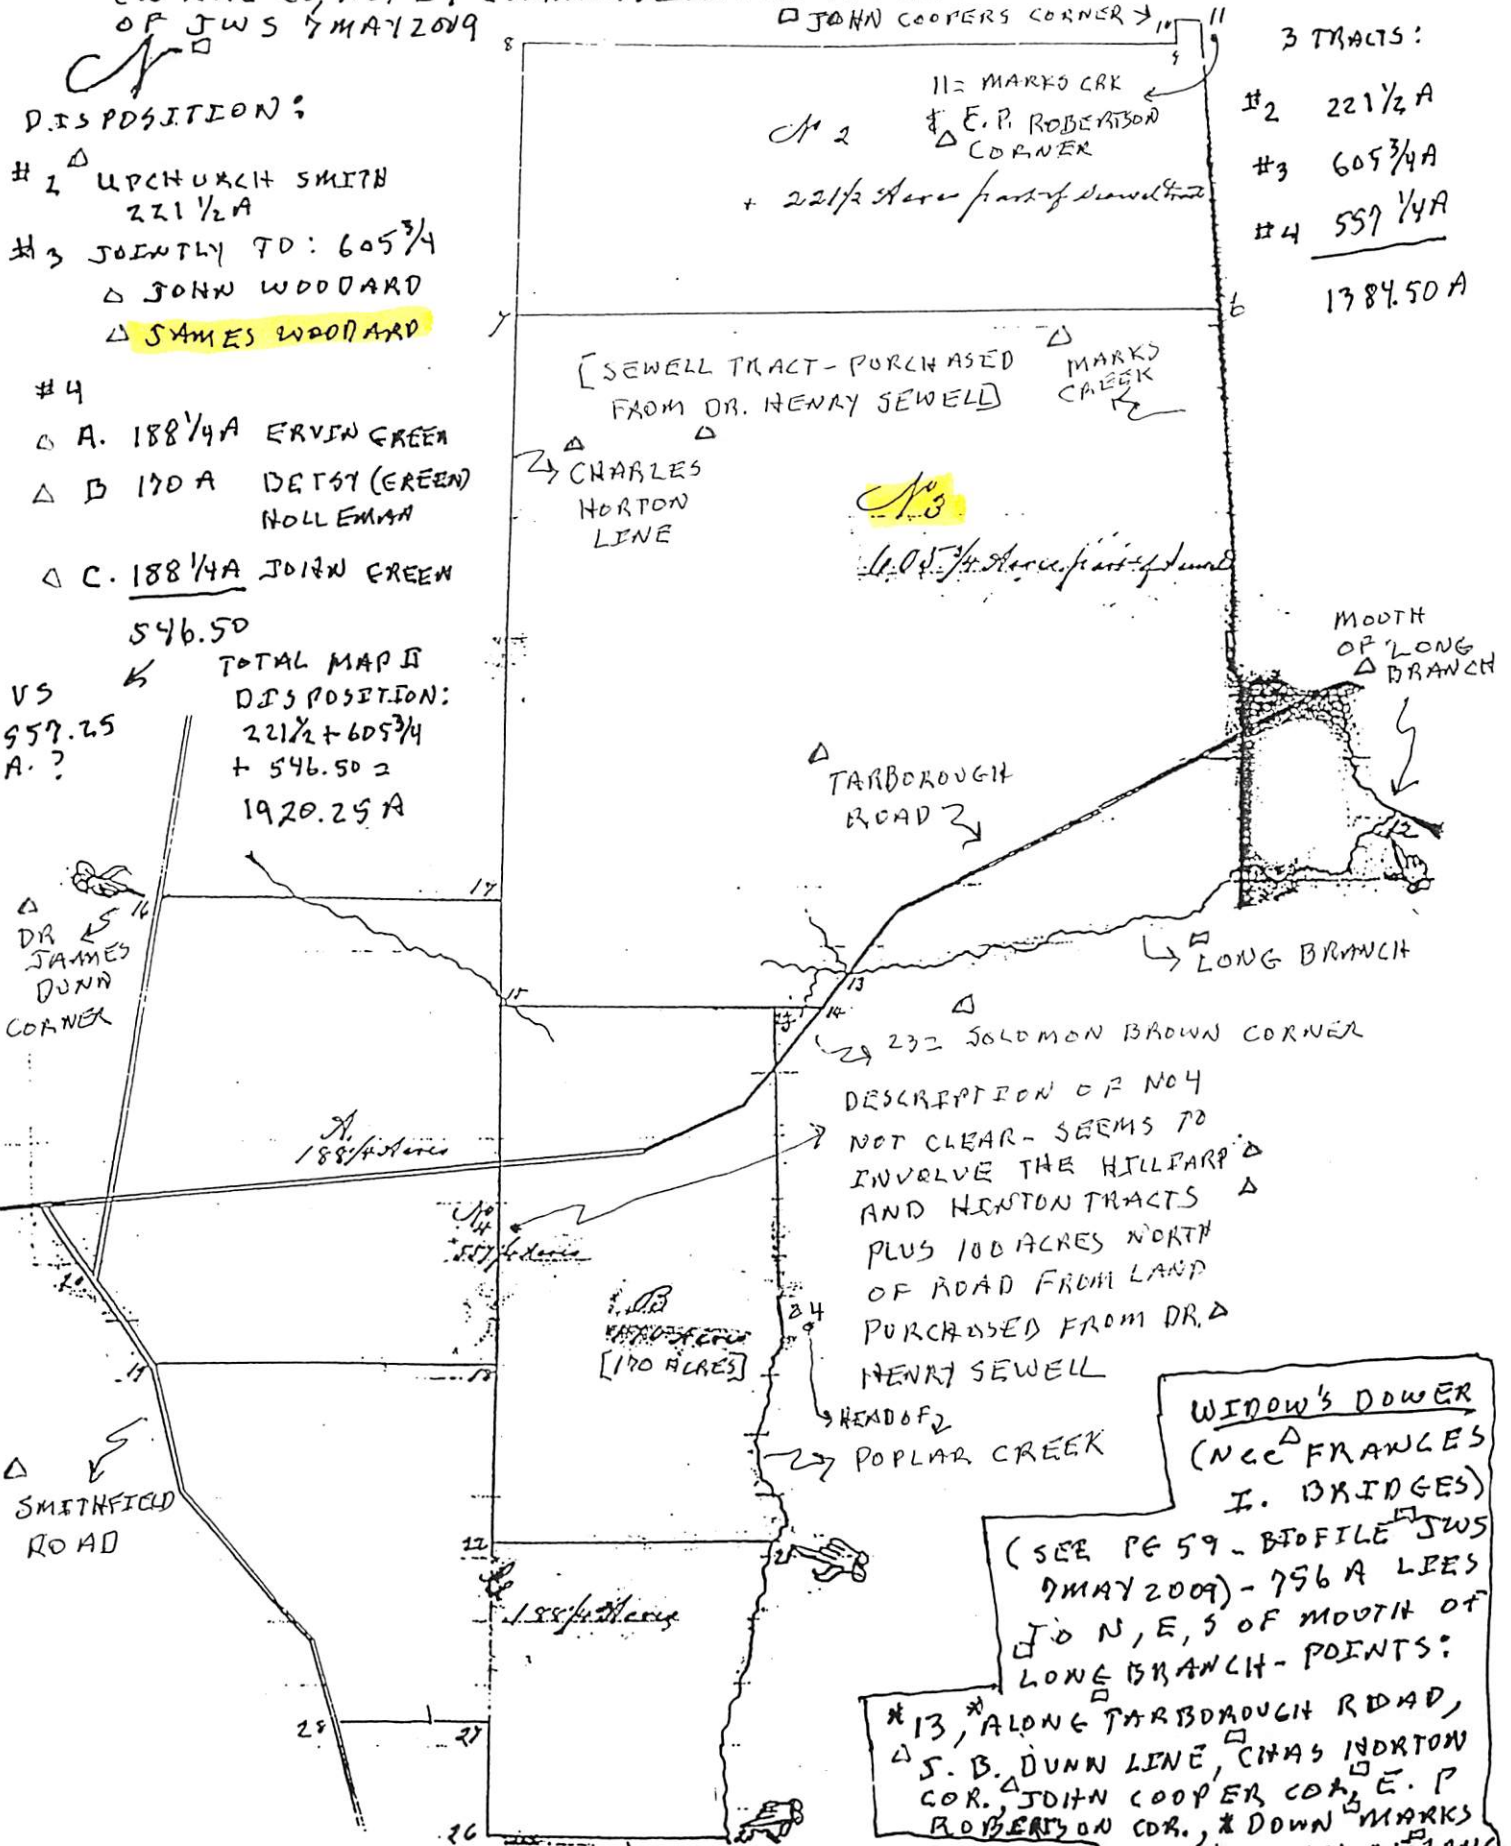 OF JWS 7 MAY 2009
N
DISPOSITION:
#2 UPCHURCH SMITH
221 1/2 A
#3 JOINTLY TO: 605 3/4
JOHN WOODARD
JAMES WOODARD
#4
A. 188 1/4 A ERVIN GREEN
B 170 A BETSY (GREEN)
HOLLEMAN
C. 188 1/4 A JOHN GREEN
546.50
VS
557.25
A. ?
TOTAL MAP II
DISPOSITION:
221 1/2 + 605 3/4
+ 546.50 =
1920.25 A
JOHN COOPERS CORNER
8
10
11
9
3 TRACTS:
#2 221 1/2 A
#3 605 3/4 A
#4 557 1/4 A
1384.50 A
11 = MARKS CRK
& E. P. ROBERTSON
CORNER
No 2
+ 221 1/2 Acres part of Sewel tract
7
6
[SEWELL TRACT - PURCHASED
FROM DR. HENRY SEWELL]
MARKS
CREEK
CHARLES
HORTON
LINE
No 3
605 3/4 Acres part of Sewel
MOUTH
OF LONG
BRANCH
TARBOROUGH
ROAD
12
16
17
DR
JAMES
DUNN
CORNER
LONG BRANCH
13
15
14
23
23 = SOLOMON BROWN CORNER
DESCRIPTION OF NO 4
NOT CLEAR - SEEMS TO
INVOLVE THE HILLIARD
AND HINTON TRACTS
PLUS 100 ACRES NORTH
OF ROAD FROM LAND
PURCHASED FROM DR.
HENRY SEWELL
A.
188 1/4 Acres
No 4
557 1/4 Acres
20
B
[170 ACRES]
24
HEAD OF
POPLAR CREEK
19
18
SMITHFIELD
ROAD
22
21
188 1/4 Acres
28
27
26
25
WIDOW'S DOWER
(NEE FRANCES
I. BRIDGES)
(SEE PG 59 - BIOFILE JWS
7 MAY 2009) - 756 A LIES
TO N, E, S OF MOUTH OF
LONG BRANCH - POINTS:
*13,* ALONG TARBOROUGH ROAD,
S. B. DUNN LINE, CHAS HORTON
COR., JOHN COOPER COR, E. P
ROBERTSON COR., * DOWN MARKS